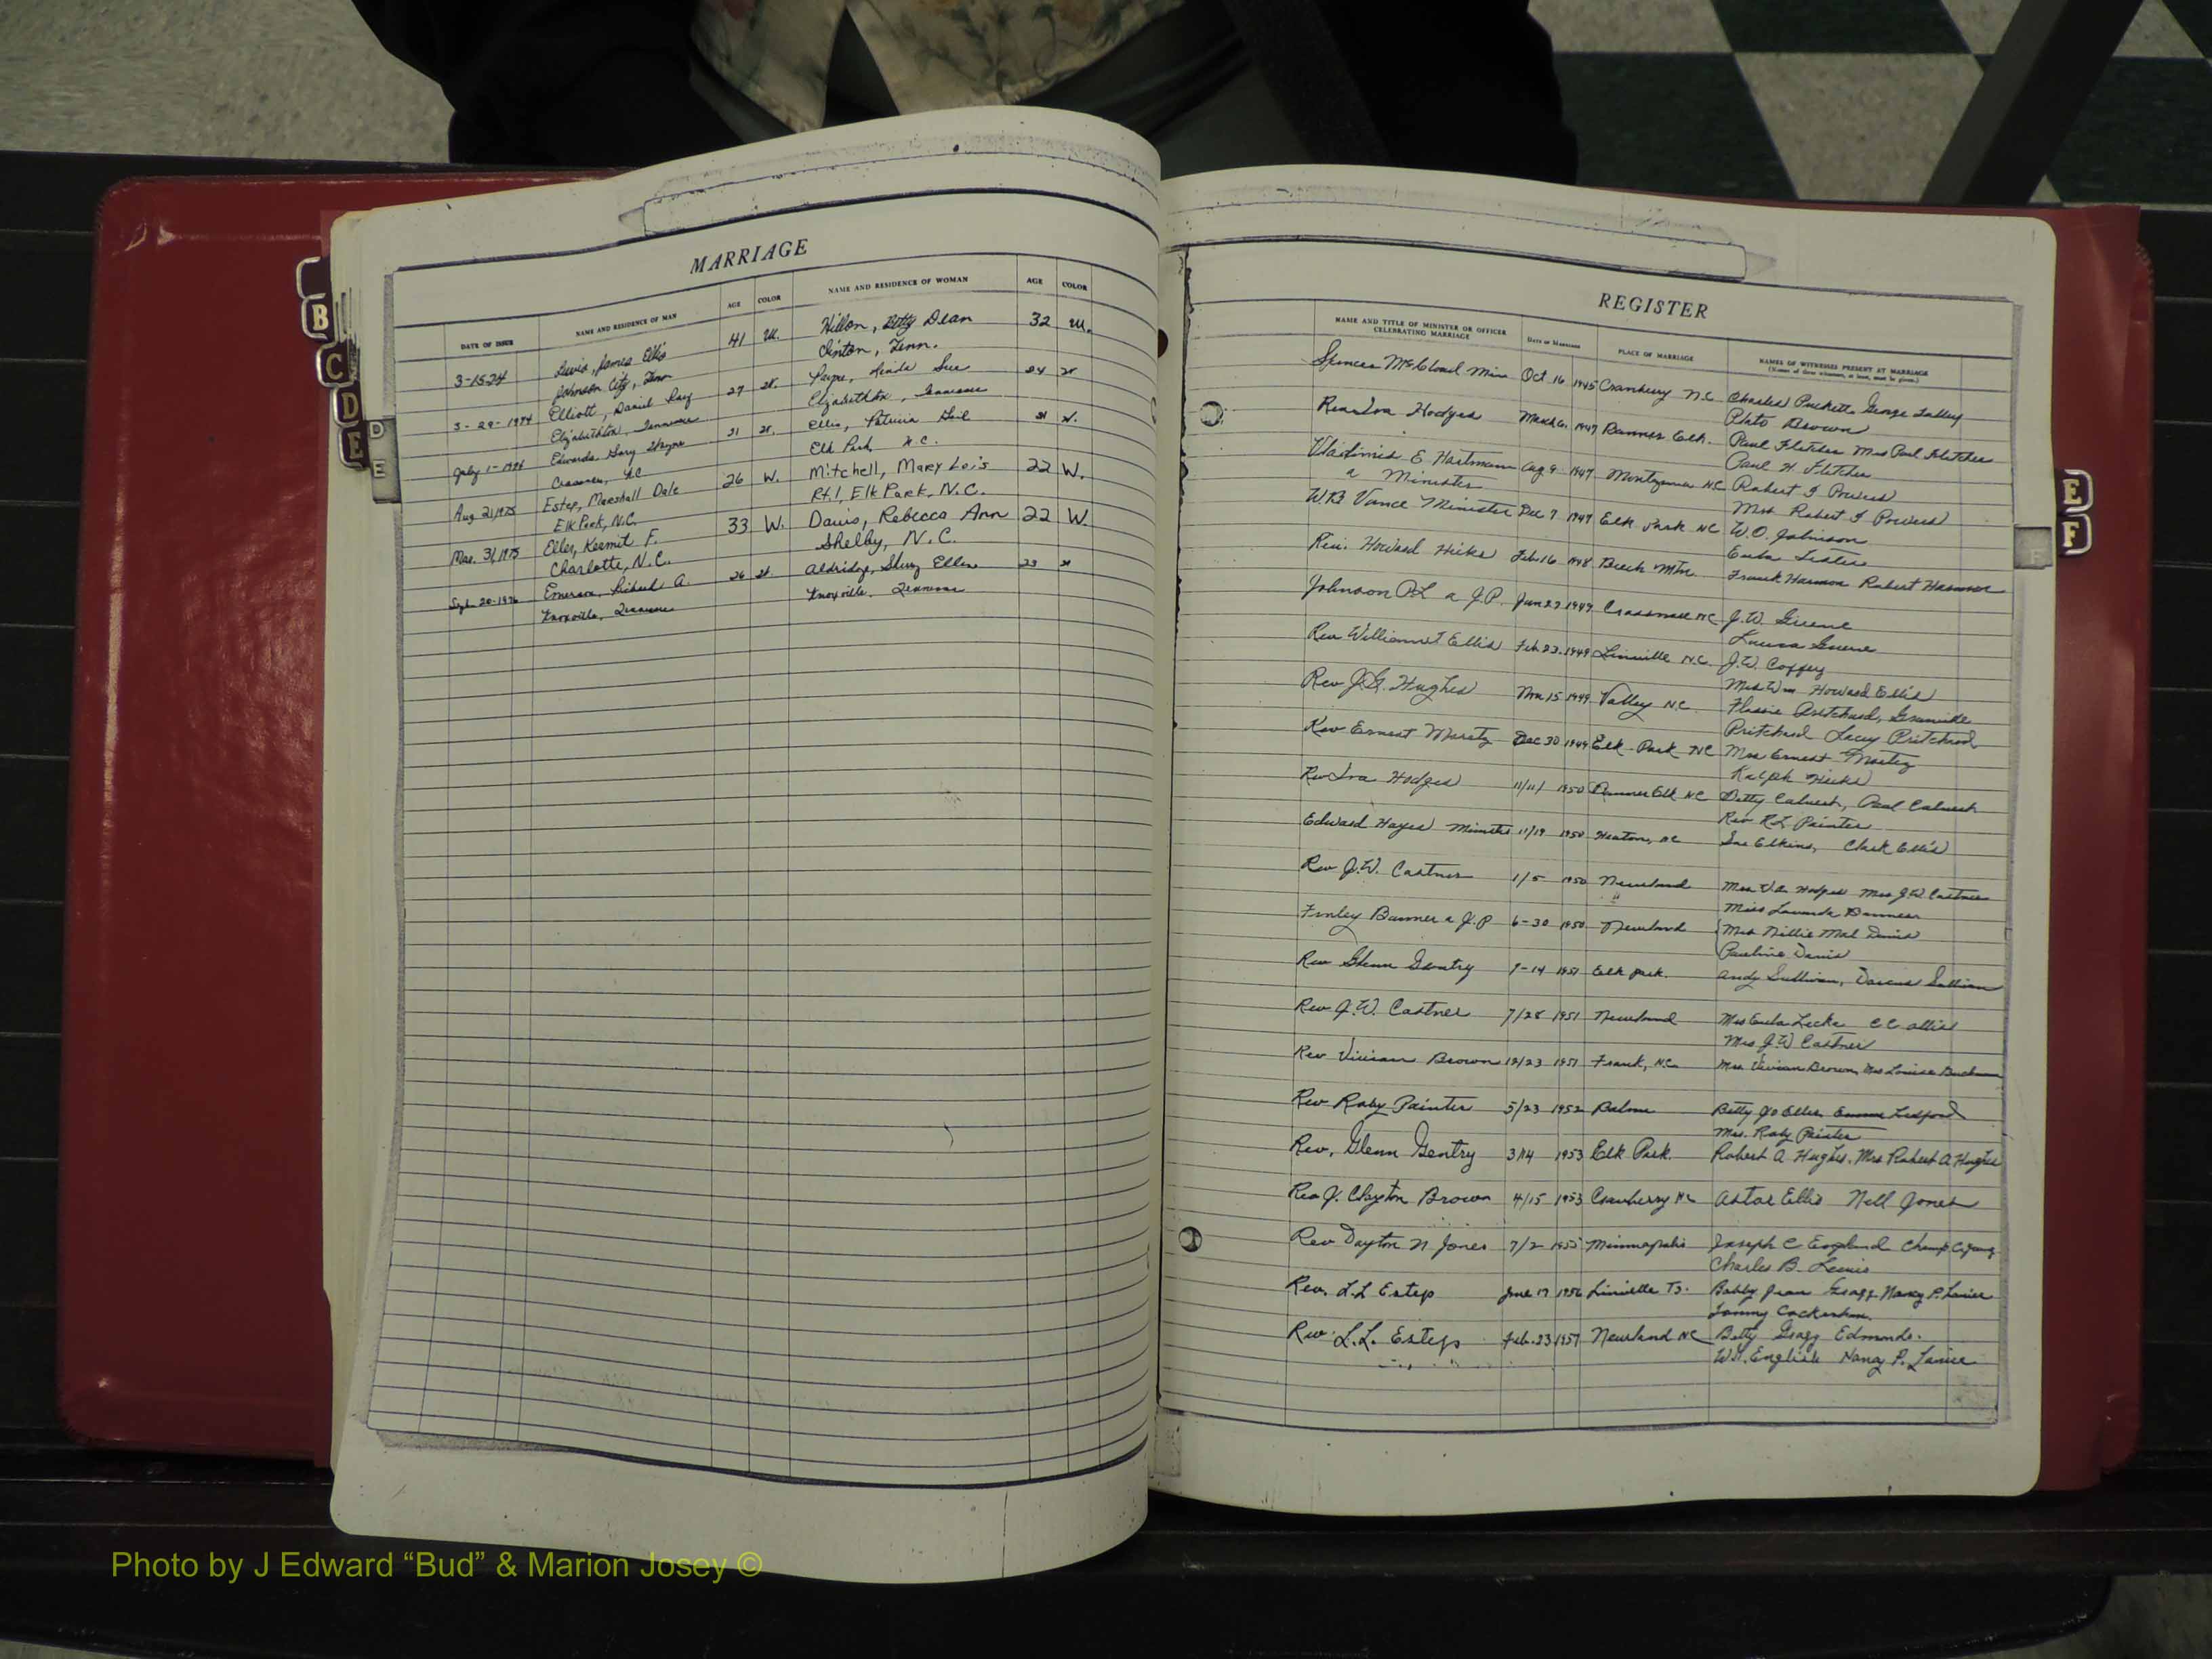 MARRIAGE
DATE OF ISSUE NAME AND RESIDENCE OF MAN AGE COLOR NAME AND RESIDENCE OF WOMAN AGE COLOR
3-15-74 Lewis, James Ellis 41 W. Hillon, Betty Dean 32 W.
Johnson City, Tenn Clinton, Tenn.
3-29-1974 Elliott, Daniel Ray 27 W. Payne, Linda Sue 24 W
Elizabethton, Tennessee Elizabethton, Tennessee
July 1-1974 Edwards, Gary Wayne 21 W. Ellis, Patricia Gail 21 W.
Crossnore, N.C. Elk Park, N.C.
Aug 21, 1975 Estep, Marshall Dale 26 W. Mitchell, Mary Lois 22 W.
Elk Park, N.C. Rt.1, Elk Park, N.C.
Mar. 31, 1975 Eller, Kermit F. 33 W. Davis, Rebecca Ann 22 W.
Charlotte, N.C. Shelby, N.C.
Sept. 20-1976 Emerson, Richard A. 26 W. Aldridge, Ellen 23 W
Knoxville, Tennessee Knoxville, Tennessee
B
C
D
E
D
E
REGISTER
NAME AND TITLE OF MINISTER OR OFFICER CELEBRATING MARRIAGE DATE OF MARRIAGE PLACE OF MARRIAGE NAMES OF WITNESSES PRESENT AT MARRIAGE
(Names of three witnesses, at least, must be given.)
Spencer McCloud Min Oct 16 1945 Cranberry N.C. Charles Puckett George
Plato Brown
Rev Ira Hodges March 1947 Banner Elk. Paul Fletcher Mrs Paul Fletcher
Paul H. Fletcher
Vladimir E. Hartman Aug 9 1947 Montezuma N.C. Robert
a Minister Mrs Robert
W.B Vance Minister Dec 7 1947 Elk Park NC W.O. Johnson
Rev. Howard Hicks Feb. 16 1948 Beech Mtn. Frank Harmon Robert Harmon
Johnson P.L a J.P. Jan 27 1949 Crossnore NC J.W. Greene
Greene
Rev William Ellis Feb 23. 1949 Linville N.C. J.W. Coffey
Mrs Wm Howard Ellis
Rev J.G. Hughes 15 1949 Valley N.C Flossie Pritchard,
Pritchard Pritchard
Rev Ernest Moretz Dec 30 1949 Elk Park NC Mrs Ernest Moretz
Ralph Hicks
Rev Ira Hodges 11/11/ 1950 Banner Elk NC Betty Calvert, Paul Calvert
Rev R.L. Painter
Edward Hayes Minister 11/19 1950 Heaton, NC Elkins, Clark Ellis
Rev J.W. Castner 1/5 1950 Newland Mrs Hodges Mrs J.W. Castner
Miss Banner
Finley Banner a J.P 6-30 1950 Newland Mrs Mae Davis
Pauline Davis
Rev Glenn Gentry 9-14 1951 Elk Park. Andy Sullivan, Sullivan
Rev J.W. Castner 7/28 1951 Newland Mrs Eula CC Ollis
Mrs J.W. Castner
Rev Vivian Brown 12/23 1951 Frank, NC Mrs Vivian Brown, Mrs Louise
Rev Roby Painter 5/23 1952 Balm Betty Jo Eller Ledford
Mrs. Roby Painter
Rev. Glenn Gentry 3/14 1953 Elk Park. Robert A Hughes. Mrs Robert A Hughes
Rev J. Clayton Brown 4/15 1953 Cranberry NC Astor Ellis Nell Jones
Rev Dayton N Jones 7/2 1955 Minneapolis Joseph C England
Charles B. Lewis
Rev. L.L Estep June 17 1956 Linville TS. Bobby Jean Gragg Nancy P. Lanier
Rev. L.L. Estep Feb. 23 1957 Newland NC Betty Gragg Edmonds.
English Nancy P. Lanier
E
F
Photo by J Edward “Bud” & Marion Josey ©